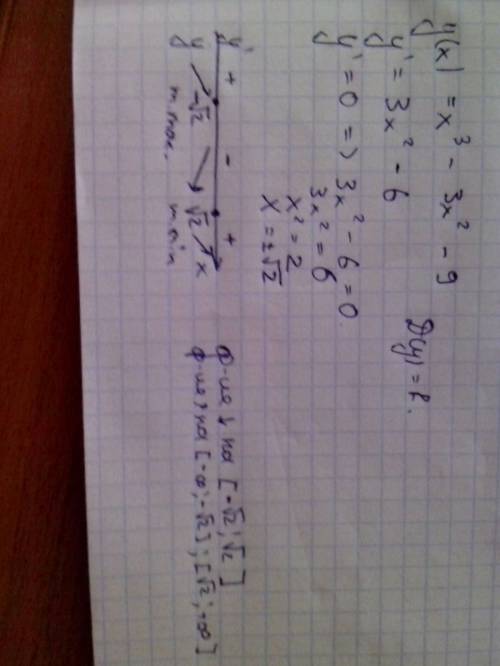 y(x) = x³ - 3x² - 9
y' = 3x² - 6 D(y) = R.
y' = 0 => 3x² - 6 = 0.
3x² = 6
x² = 2
x = ±√2
y' + - +
-√2 √2 x
y
m. max. m. min
Ф-ия ↓ на [-√2; √2]
Ф-ия ↑ на [-∞; -√2]; [√2; +∞]